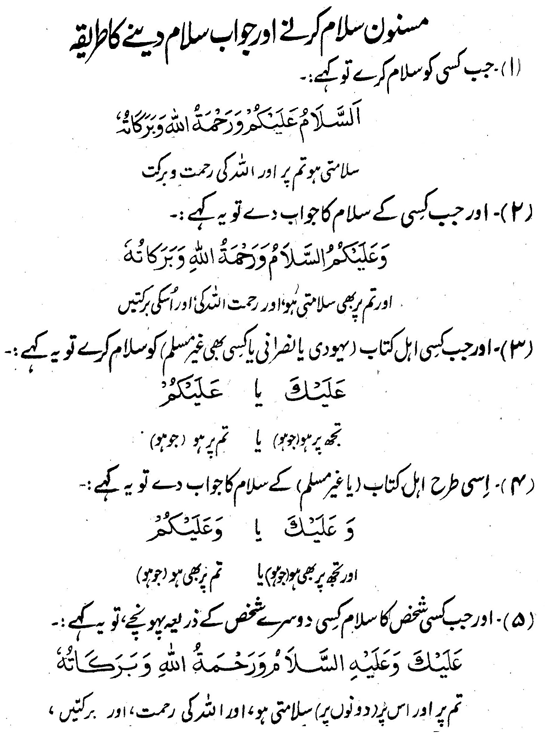 مسنون سلام کرنے اور جواب سلام دینے کا طریقہ
(۱)- جب کسی کو سلام کرے تو کہے:-
اَلسَّلَامُ عَلَیْکُمْ وَرَحْمَةُ اللهِ وَبَرَکَاتُهٗ
سلامتی ہو تم پر اور اللہ کی رحمت و برکت
(۲)- اور جب کِسی کے سلام کا جواب دے تو یہ کہے:-
وَعَلَیْکُمُ السَّلَامُ وَرَحْمَةُ اللهِ وَبَرَکَاتُهٗ
اور تم پر بھی سلامتی ہو، اور رحمت اللہ کی، اور اُسکی برکتیں
(۳)- اور جب کسِی اہل کتاب (یہودی یا نصرانی یا کسی بھی غیر مسلم) کو سلام کرے تو یہ کہے:-
عَلَیْكَ یا عَلَیْکُمْ
تجھ پر ہو (جو ہو) یا تم پر ہو (جو ہو)
(۴)- اِسی طرح اہل کتاب (یا غیر مسلم) کے سلام کا جواب دے تو یہ کہے:-
وَ عَلَیْكَ یا وَعَلَیْکُمْ
اور تجھ پر بھی ہو (جو ہو) یا تم پر بھی ہو (جو ہو)
(۵)- اور جب کسی شخص کا سلام کِسی دوسرے شخص کے ذریعہ پہونچے، تو یہ کہے:-
عَلَیْكَ وَعَلَیْهِ السَّلَامُ وَرَحْمَةُ اللهِ وَبَرَکَاتُهٗ
تم پر اور اس پر (دونوں پر) سلامتی ہو، اور اللہ کی رحمت، اور برکتیں،